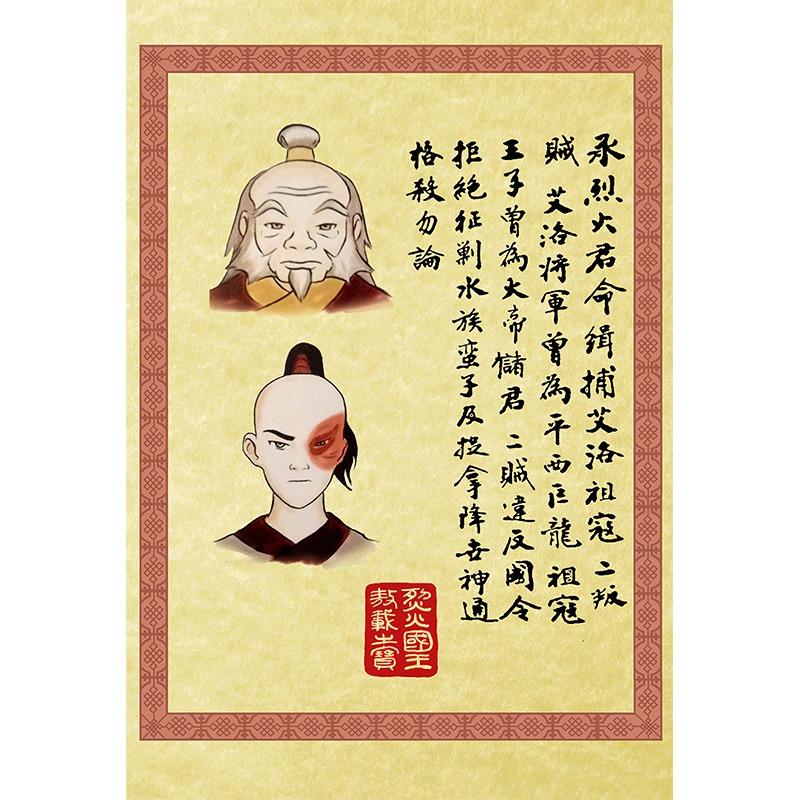 承烈火君命緝捕艾洛祖寇二叛
賊 艾洛將軍曾為平西巨龍 祖寇
王子曾為大帝儲君 二賊違反國令
拒絕征剿水族蠻子及捉拿降世神通
格殺勿論
烈火國王